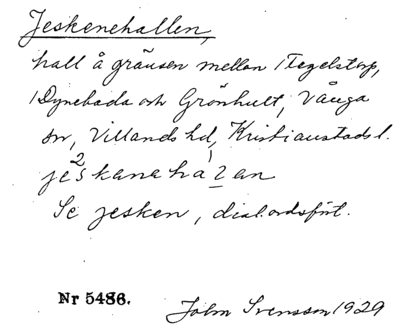 Jeskenehallen,
hall å gränsen mellan Tegelstorp,
Dyneboda och Grönhult, Vånga
sn, Villands hd, Kristianstads l.
Se jesken, dial.ordsfört.
Nr 5486.
John Svensson 1929